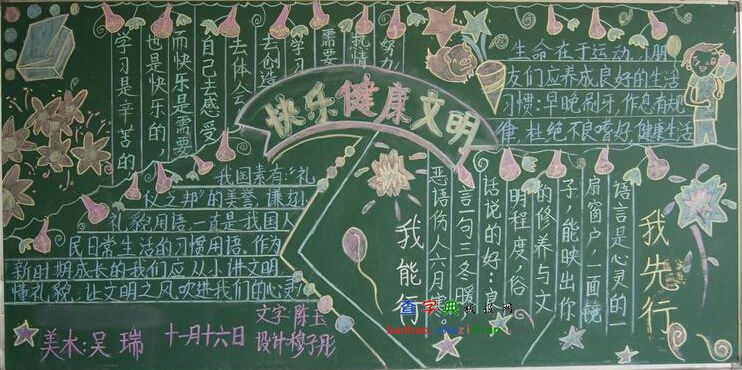 快乐健康文明
学习是辛苦的
也是快乐的，
而快乐是需要
自己去感受
去体会
去创造
学习
需要
热情
努力
生命在于运动，小朋
友们应养成良好的生活
习惯：早晚刷牙，作息有规
律，杜绝不良嗜好，健康生活
我国素有“礼
仪之邦”的美誉，谦逊
礼貌用语，一直是我国人
民日常生活的习惯用语。作为
新时期成长的我们应从小讲文明
懂礼貌，让文明之风吹进我们的心灵
我先行
语言是心灵的一
扇窗户，一面镜
子，能映出你
的修养与文
明程度，俗
话说的好：良
言一句三冬暖
恶语伤人六月寒
我能行
美术：吴瑞
十一月十六日
文字：陈玉
设计：穆子彤
查字典教案网